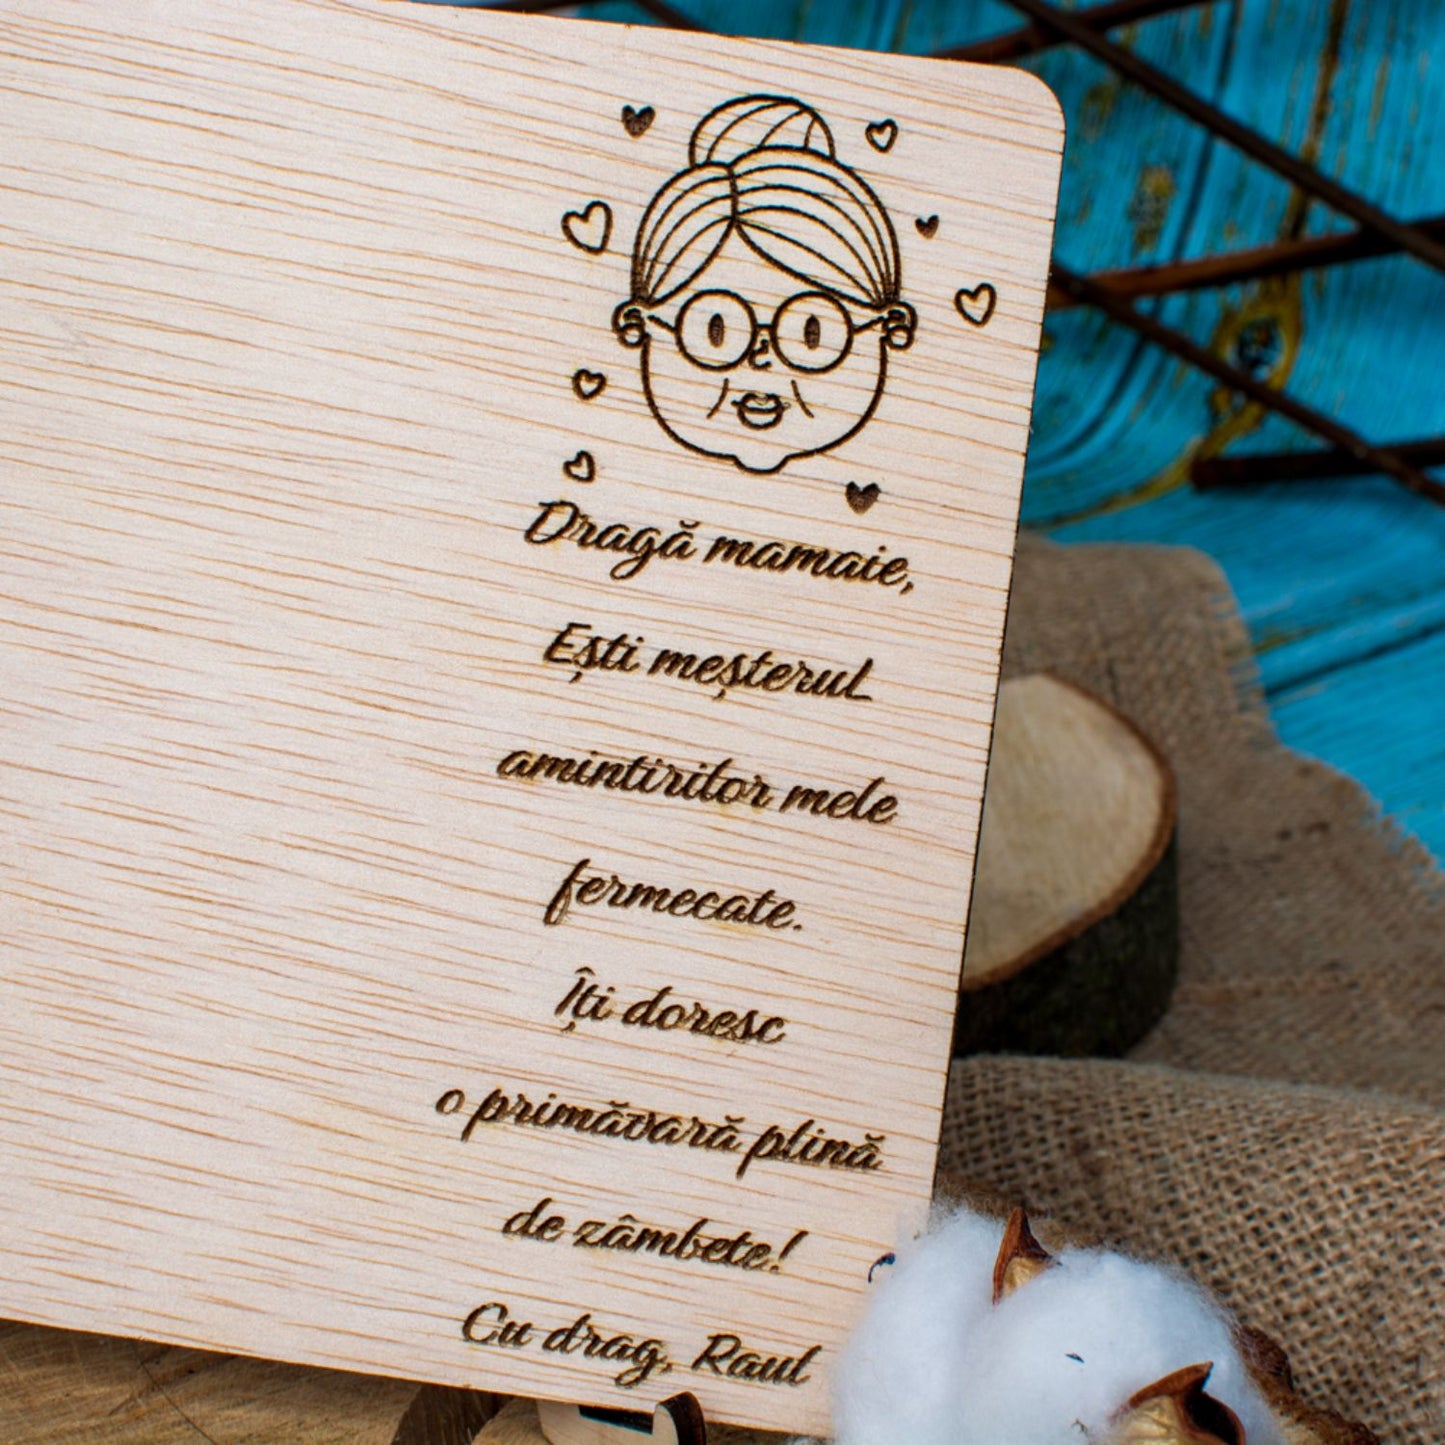 Dragă mamaie,
Ești meșterul
amintirilor mele
fermecate.
Îți doresc
o primăvară plină
de zâmbete!
Cu drag, Raul